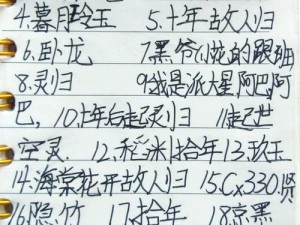 4.暮月玲玉 5.十年故人归
6.卧龙 7黑爷(小花的跟班
8.灵归 9我是派大星阿巴阿
巴, 10.十年后起灵归 11起世
空灵. 12.稻米拾年13.玖玉
14.海棠花开故人归 15.Cx330.贤
16.隐竹 17.拾年 18京黑